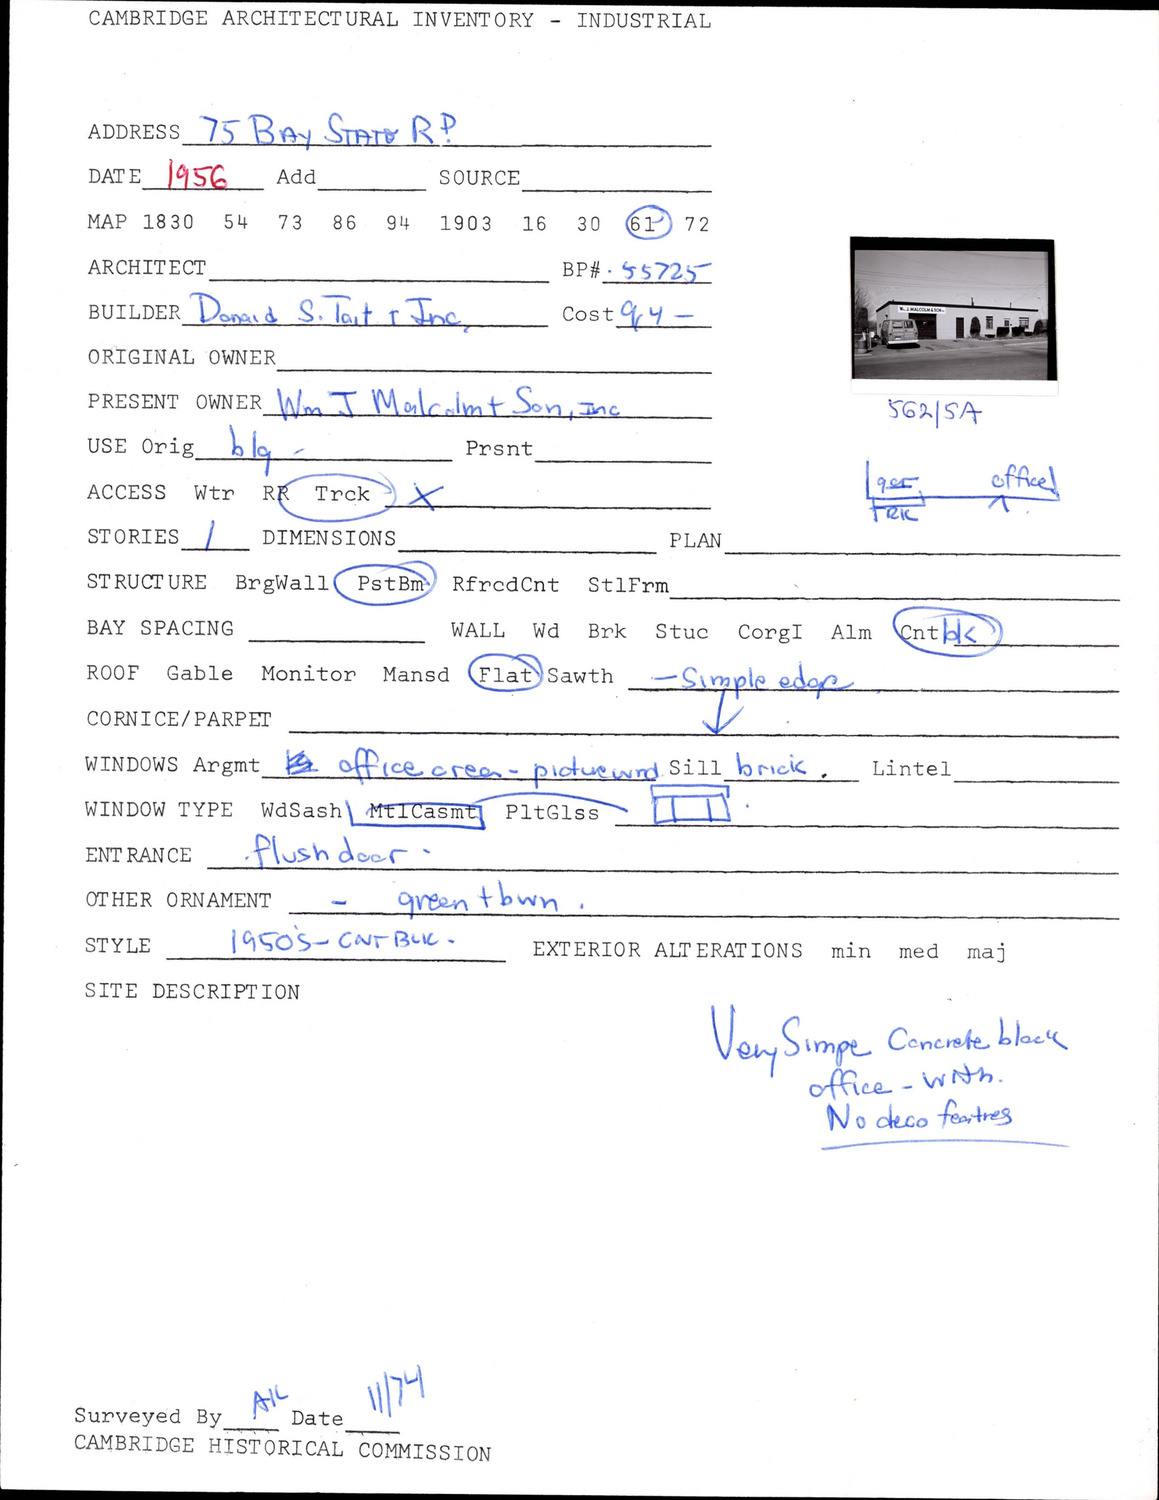 CAMBRIDGE ARCHITECTURAL INVENTORY - INDUSTRIAL
ADDRESS 75 BAY STATE RD.
DATE 1956 Add SOURCE
MAP 1830 54 73 86 94 1903 16 30 61 72
ARCHITECT BP# 55725
BUILDER Donald S. Tait + Inc, Cost 9,4 -
ORIGINAL OWNER
PRESENT OWNER Wm J Malcolm + Son, Inc
Wm. J. MALCOLM & SON
562/5A
USE Orig blg - Prsnt
ACCESS Wtr RR Trck X
gar. office
TRK
STORIES 1 DIMENSIONS PLAN
STRUCTURE BrgWall PstBm RfrcdCnt StlFrm
BAY SPACING WALL Wd Brk Stuc CorgI Alm Cnt blk
ROOF Gable Monitor Mansd Flat Sawth - Simple edge
CORNICE/PARPET
WINDOWS Argmt office area - picture wnd Sill brick. Lintel
WINDOW TYPE WdSash MtlCasmt PltGlss
ENTRANCE flush door -
OTHER ORNAMENT - green + bwn.
STYLE 1950's - CNT BLK - EXTERIOR ALTERATIONS min med maj
SITE DESCRIPTION
Very Simpe Concrete block
office - with.
No deco featres
Surveyed By AK Date 11/74
CAMBRIDGE HISTORICAL COMMISSION